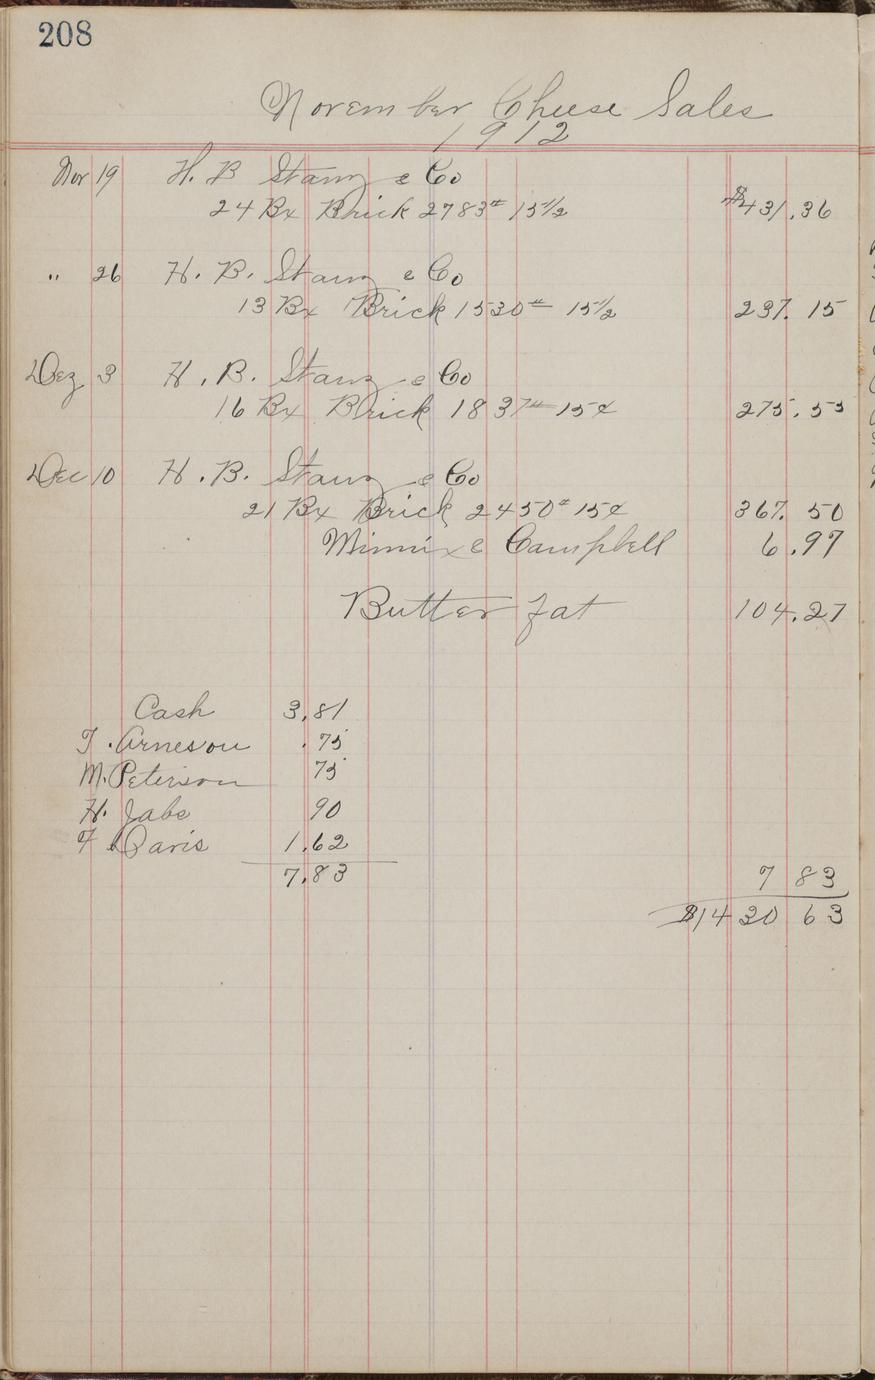 208
November Cheese Sales
1912
Nov 19 H. B Stanz & Co
24 Bx Brick 2783# 15 1/2 $431.36
" 26 H. B. Stanz & Co
13 Bx Brick 1530# 15 1/2 237.15
Dez 3 H. B. Stanz & Co
16 Bx Brick 1837# 15¢ 275.55
Dec 10 H. B. Stanz & Co
21 Bx Brick 2450# 15¢ 367.50
& Campbell 6.97
Butter fat 104.27
Cash 3.81
T. Arneson .75
M. Peterson 75
H. Jabs 90
F Davis 1.62
7.83 7 83
$1430 63